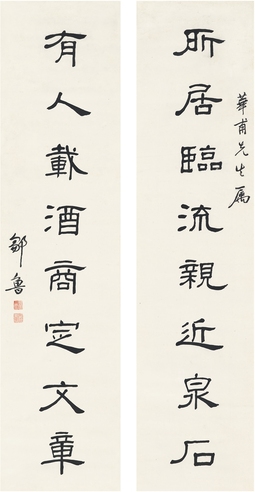 所居臨流親近泉石
華甫先生屬
有人載酒商定文章
鄒魯